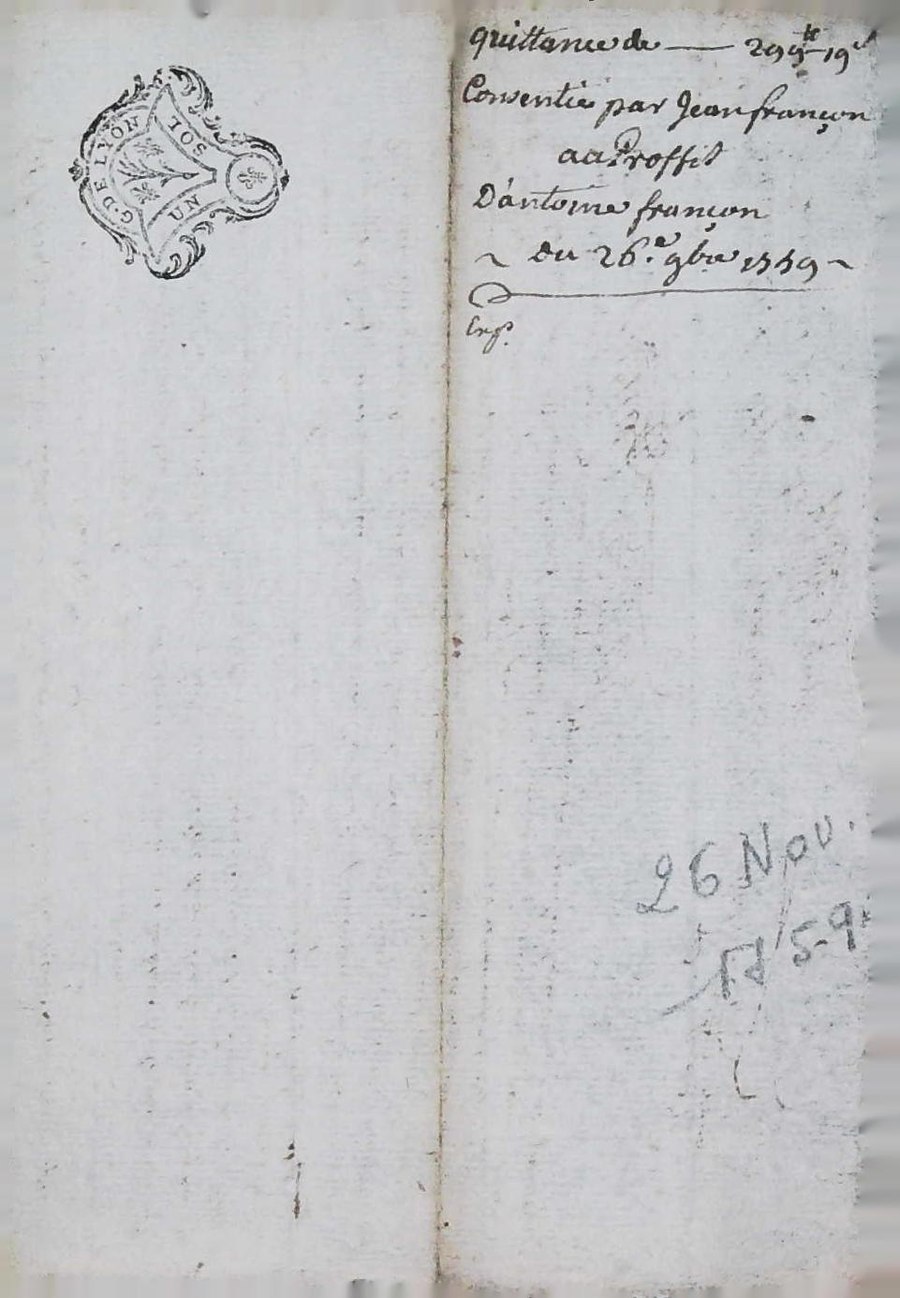 G. DE LYON
UN SOL
quittance de —— 299tt 19s
Consentie par Jean françon
au Proffit
D'antoine françon
~ du 26.e 9bre 1759 ~
Exp.
26 Nov.
1759.